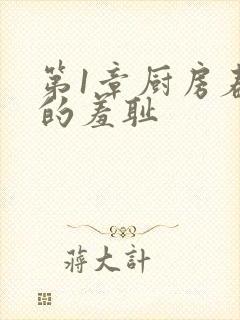 第1章厨房春
的羞耻
蒋大计